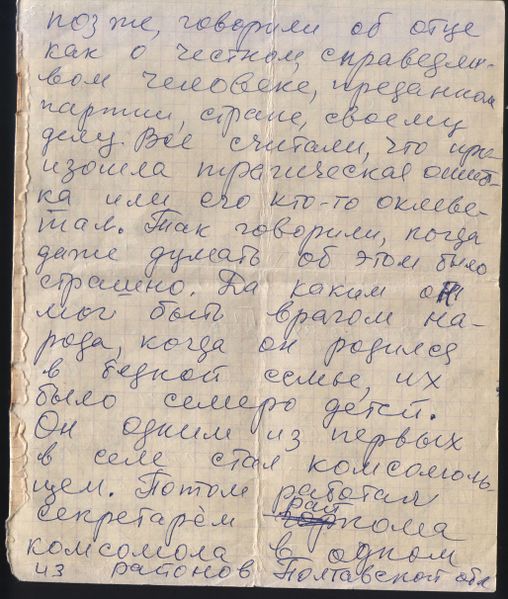 позже, говорили об отце
как о честном, справедли-
вом человеке, преданном
партии, стране, своему
делу. Все считали, что про-
изошла трагическая ошиб-
ка или его кто-то оклеве-
тал. Так говорили, когда
даже думать об этом было
страшно. Да каким он
мог быть врагом на-
рода, когда он родился
в бедной семье, их
было семеро детей.
Он одним из первых
в селе стал комсомоль-
цем. Потом работал
секретарём райкома
комсомола в одном
из районов Полтавской обл